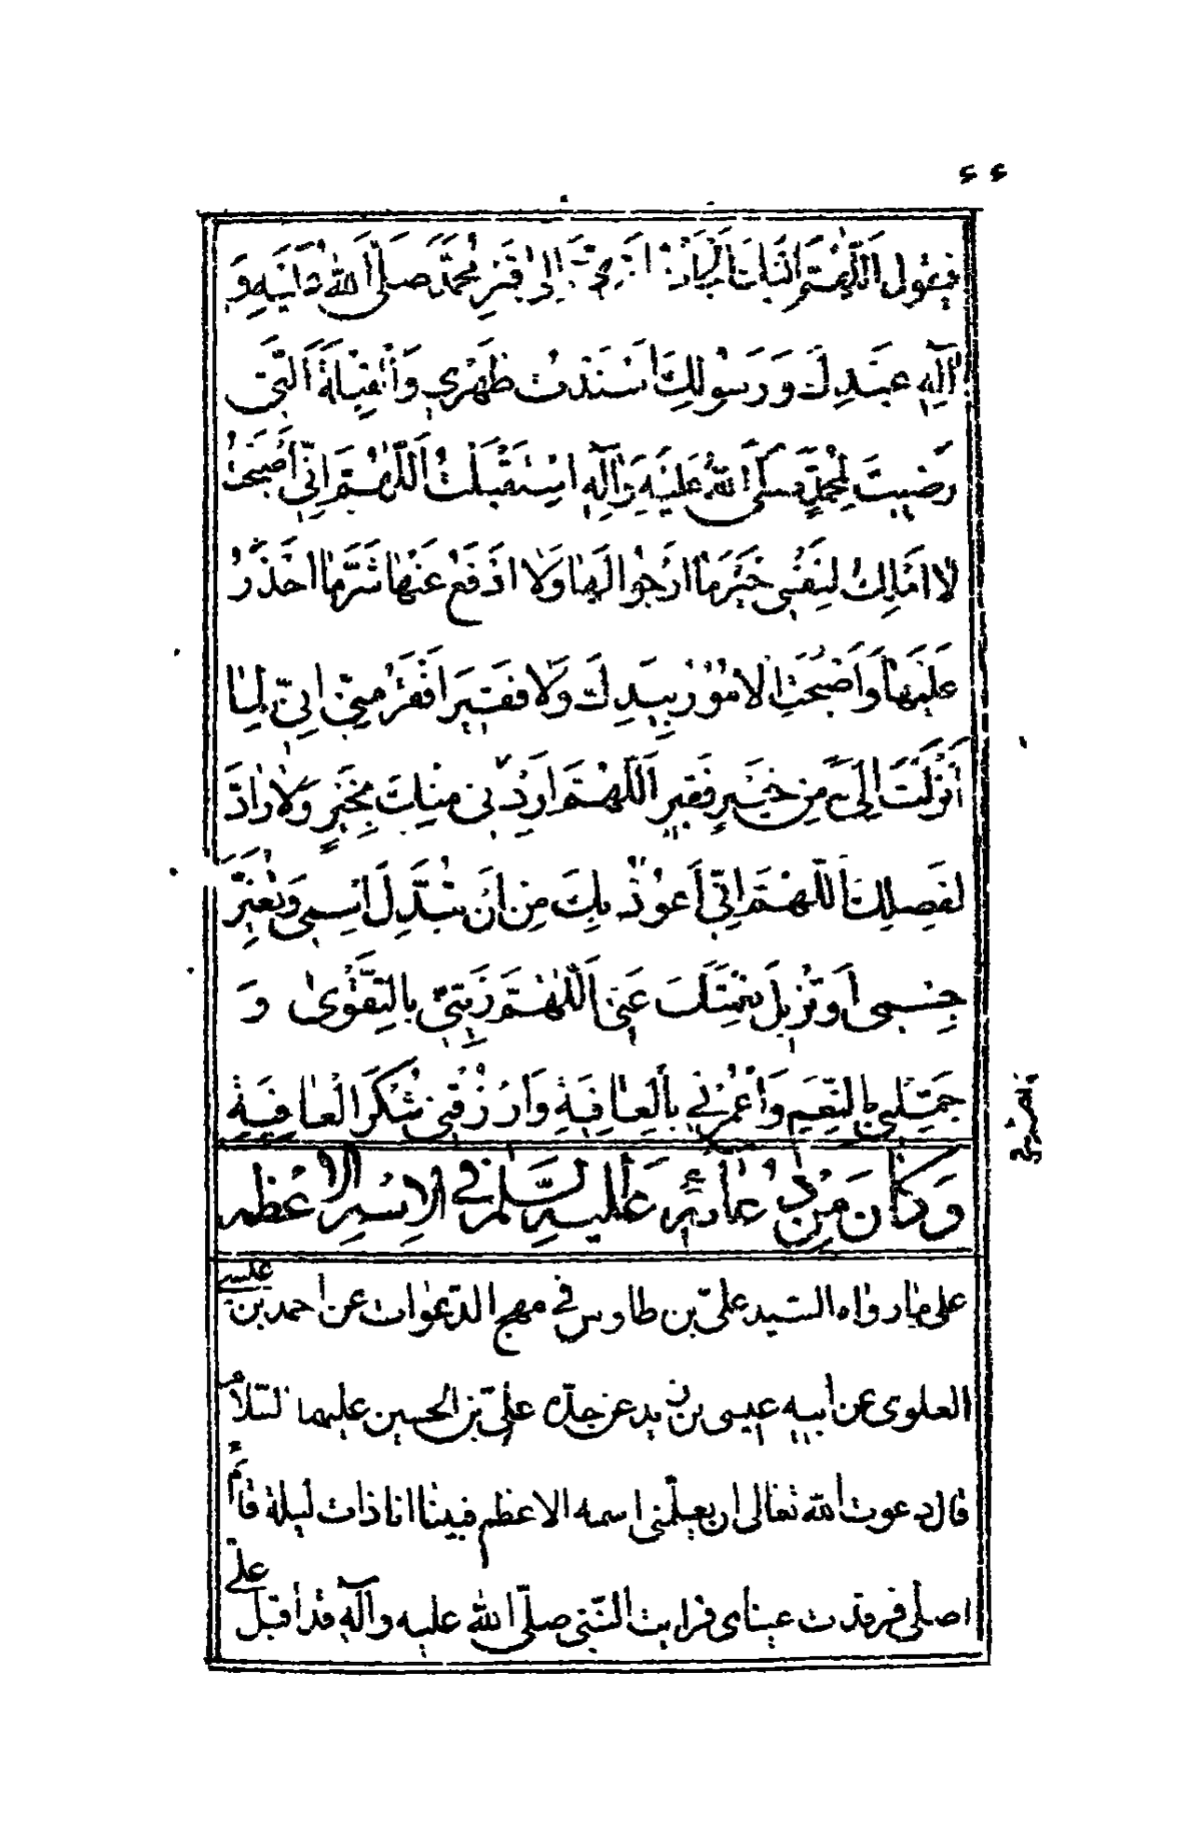 ٤٤
فيقول اَللّٰهُمَّ اِلَيْكَ اَلْجَأْتُ اَمْرِى وَ اِلٰى قَبْرِ مُحَمَّدٍ صَلَّى اللهُ عَلَيْهِ وَ
اٰلِهِ عَبْدِكَ وَ رَسُولِكَ اَسْنَدْتُ ظَهْرِي وَ اَلْقِبْلَةَ الَّتِى
رَضِيتَ لِمُحَمَّدٍ صَلَّى اللهُ عَلَيْهِ وَاٰلِهِ اسْتَقْبَلْتُ اَللّٰهُمَّ اِنِّي اَصْبَحْتُ
لا اَمْلِكُ لِنَفْسِى خَيْرَ مٰا اَرْجُوا لَهٰا وَلٰا اَدْفَعُ عَنْهٰا شَرَّ مٰا اَحْذَرُ
عَلَيْهٰا وَ اَصْبَحَتِ الاُمُورُ بِيَدِكَ وَلٰا فَقِيرَ اَفْقَرُ مِنِّي اِنِّي لِمٰا
اَنْزَلْتَ اِلَيَّ مِنْ خَيْرٍ فَقِيرٌ اَللّٰهُمَّ ارْدُدْنى مِنْكَ بِخَيْرٍ وَلٰا رٰادَّ
لفَضلِكَ اَللّٰهُمَّ اِنِّي اَعُوذُ بِكَ مِنْ اَنْ تُبَدِّلَ اسْمِى وَ تُغَيِّرَ
جِسْمِى اَوْ تُزِيلَ نِعْمَتَكَ عَنِّى اَللّٰهُمَّ زَيِّنِّي بِالتَّقْوٰى وَ
جَمِّلْنِي بِالنِّعَمِ وَاغْمُرْنِي بِالْعٰافِيَةِ وَارْزُقْنِى شُكْرَ الْعٰافِيَةِ
وَكٰانَ مِنْ دُعٰائِهِ عَلَيْهِ السَّلٰمُ فِي الْاِسْمِ الْاَعْظَمِ
على ما رواه السّيد علىّ بن طاوس في مهج الدّعوات عن احمد بن عليسي
العلوى عن ابيه عيسى بن زيد عن جدّه علىّ بن الحسين عليهما السّلام
قال دعوت الله تعالى ان يعلّمنى اسمه الاعظم فبينا انا ذات ليلة قائم
اصلى فرقدت عيناى فرايت النّبى صلّى الله عليه وآله قد اقبل علىّ